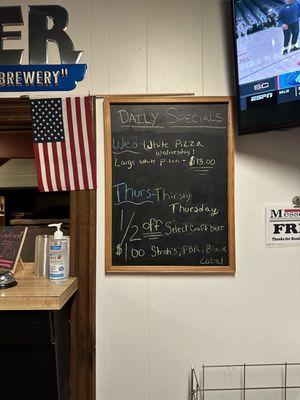 ER
BREWERY
DAILY SPECIALS
Wed - White Pizza
Wednesday!
Large white pizza - $13.00
Thurs - Thirsty
Thursday
1/2 off Select Craft Beer
$1.00 Stroh's, PBR, Black
Label
ESPN
MLB
FRE
Thanks for